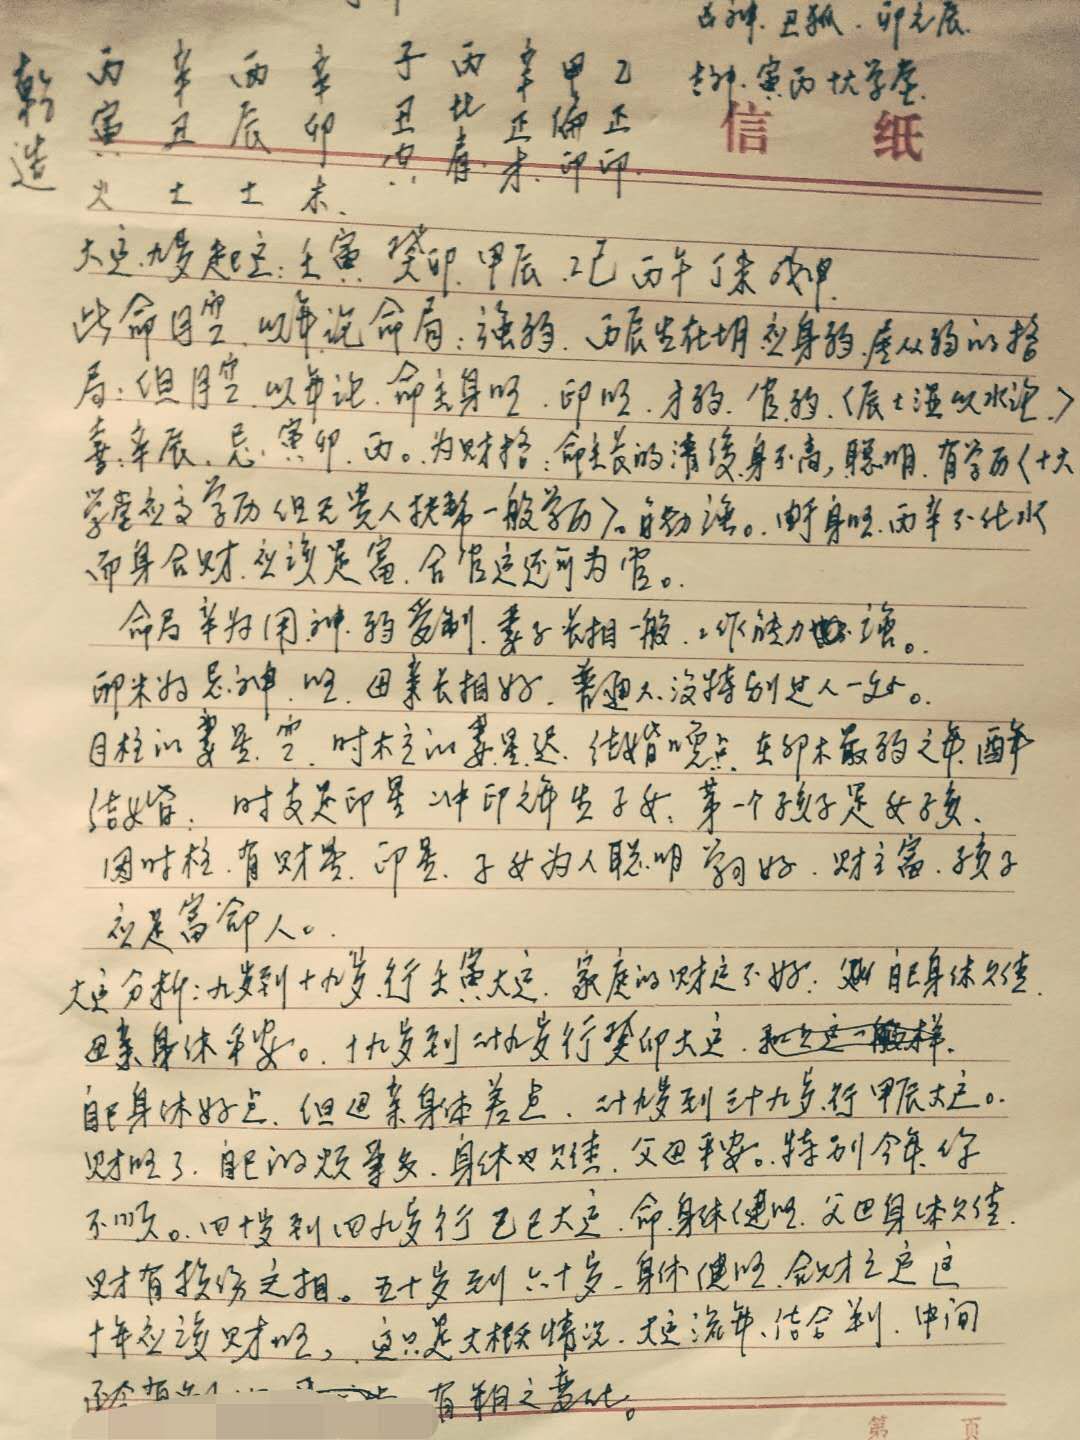 吉神：寅丙十大学堂
信 纸
乾造
丙 辛 丙 辛 子 丙 辛 甲 乙
寅 丑 辰 卯 丑 比 正 偏 正
火 土 土 木 空 肩 才 印 印
大运九岁起运：壬寅 癸卯 甲辰 乙巳 丙午 丁未 戊申
此命月空，以年论命局：强弱，丙辰生在丑月应身弱，是从弱的格
局：但月空，以年论，命主身旺，印旺，才弱，官弱〈辰土湿以水论〉
喜：辛辰，忌：寅卯丙。为财格：命主长的清俊身不高，聪明，有学历〈十大
学堂应高学历但无贵人扶帮一般学历〉。自动强。由于身旺，丙辛不化水
而身合财，应该是富，合官运还可为官。
命局辛为用神，弱受制，妻子长相一般，工作能力强。
卯木为忌神，旺，母亲长相好，普通人没特别过人一处。
日柱的妻星空，时木立的妻星迟，结婚晚点，在卯木最弱之年酉年
结婚，时支是印星，冲印之年生子女，第一个孩子是女孩，
因时柱有财星，印星，子女为人聪明学习好，财主富，孩子
应是富命人。
大运分析：九岁到十九岁行壬寅大运，家庭的财运不好，自己身体欠佳
母亲身体平安。十九岁到二十九岁行癸卯大运，
自己身体好点，但母亲身体差点，二十九岁到三十九岁行甲辰大运。
财旺了，自己的烦事多，身体也欠佳，父母平安。特别今年你
不顺。四十岁到四九岁行乙巳大运，命身体健旺，父母身体欠佳
财有损伤之相。五十岁到六十岁，身体健旺，合财之运这
十年应该财旺，这只是大概情况，大运流年结合判，中间
有年月之变化。
第 页